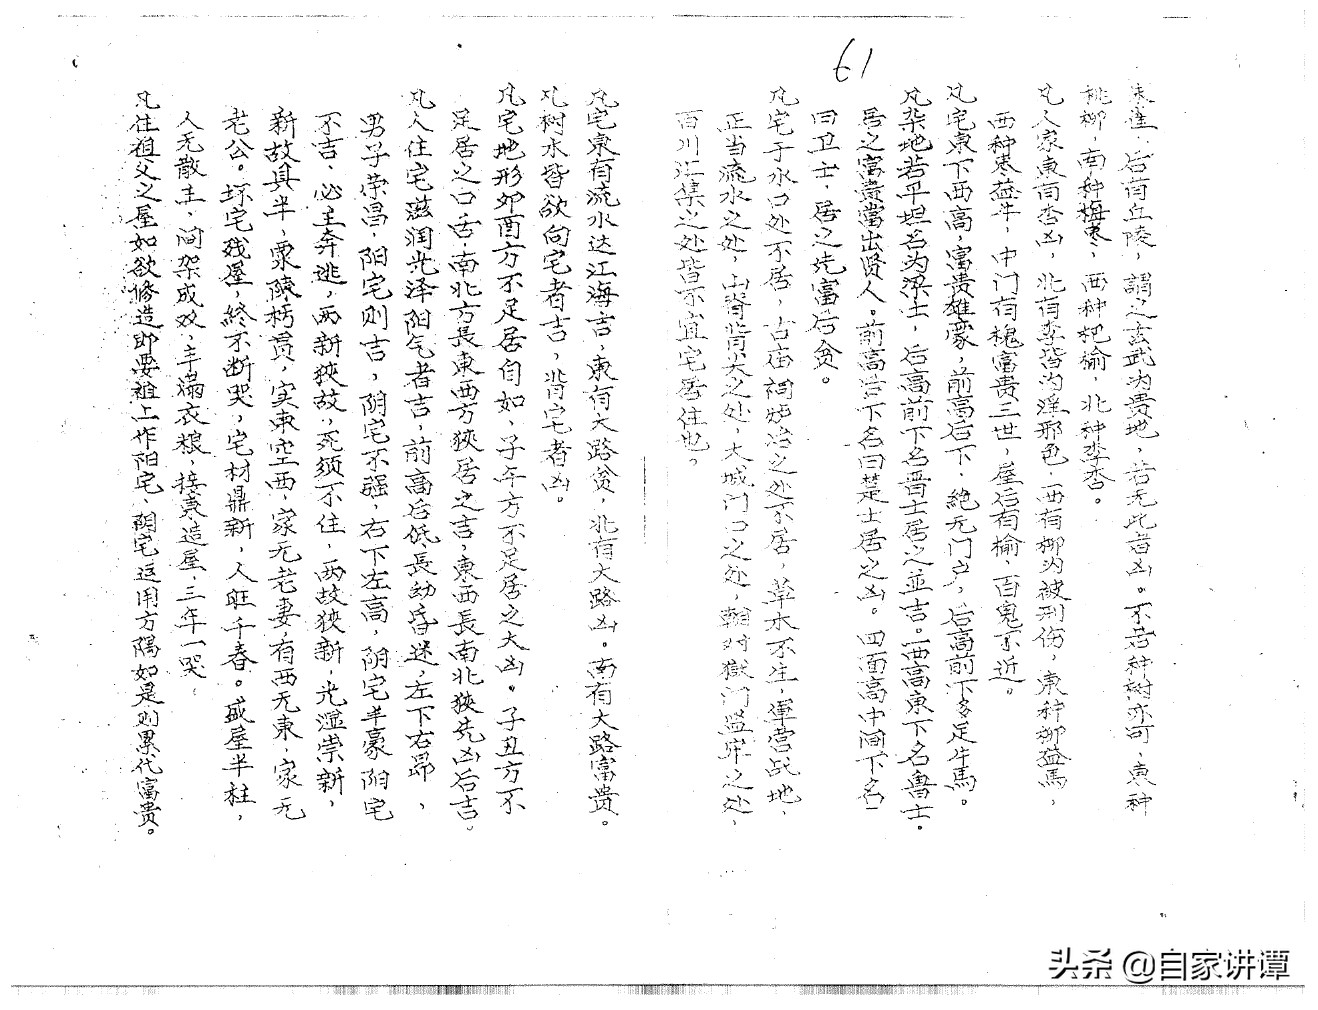 61
后有丘陵，謂之玄武为贵地，若无此者凶。不若种树亦可，東种
桃柳，南种梅棗，西种杷榆，北种李杏。
凡人家東有杏凶，北有李皆为淫邪色，西有柳为被刑伤，東种柳益馬，
西种棗益牛，中门有槐富贵三世，屋后有榆，百鬼不近。
凡宅東下西高，富貴雄豪，前高后下，絶无门户，后高前下多足牛馬。
凡宅地若平坦名为梁士，后高前下名晋士居之並吉。西高東下名魯士，
居之富貴當出贤人。前高后下名曰楚士居之凶。四面高中间下名
曰卫士，居之先富后贫。
凡宅于水口处不居，古庙祠炉冶之处不居，草木不生，軍营战地，
正当流水之处，山脊背尖之处，大城门口之处，朝对獄门监牢之处，
百川汇集之处皆不宜宅居住也。
凡宅東有流水达江海吉，東有大路贫，北有大路凶。南有大路富贵。
凡树木皆欲向宅者吉，背宅者凶。
凡宅地形卯酉方不足居自如，子午方不足居之大凶。子丑方不
足居之口舌，南北方長東西方狹居之吉，東西長南北狹先凶后吉。
凡人住宅滋润光泽阳气者吉，前高后低長幼昏迷，左下右昂，
男子荣昌，阳宅则吉，阴宅不强，右下左高，阴宅丰豪阳宅
不吉，必主奔逃，两新狹故，死须不住，两故狹新，光湿崇新，
新故具半，粟陳朽贯，实東空西，家无老妻，有西无東，家无
老公。坏宅残屋，終不断哭，宅材鼎新，人旺千春。盛屋半柱，
人无散主，间架成双，丰滿衣粮，接東造屋，三年一哭，
凡住祖父之屋如欲修造即要祖上作阳宅，阴宅运用方隅如是则累代富贵。
头条 @自家讲谭